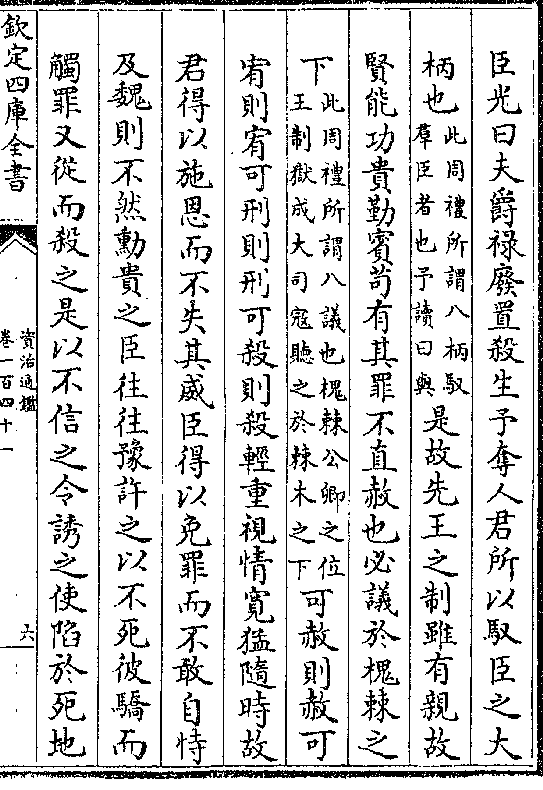 臣光曰夫爵祿廢置殺生予奪人君所以馭臣之大
柄也此周禮所謂八柄馭羣臣者也予讀曰與是故先王之制雖有親故
賢能功貴勤賓苟有其罪不直赦也必議於槐棘之
下此周禮所謂八議也槐棘公卿之位王制獄成大司寇聽之於棘木之下可赦則赦可
宥則宥可刑則刑可殺則殺輕重視情寛猛隨時故
君得以施恩而不失其威臣得以免罪而不敢自恃
及魏則不然勳貴之臣往往豫許之以不死彼驕而
觸罪又從而殺之是以不信之令誘之使陷於死地
欽定四庫全書
資治通鑑
卷一百四十一
六